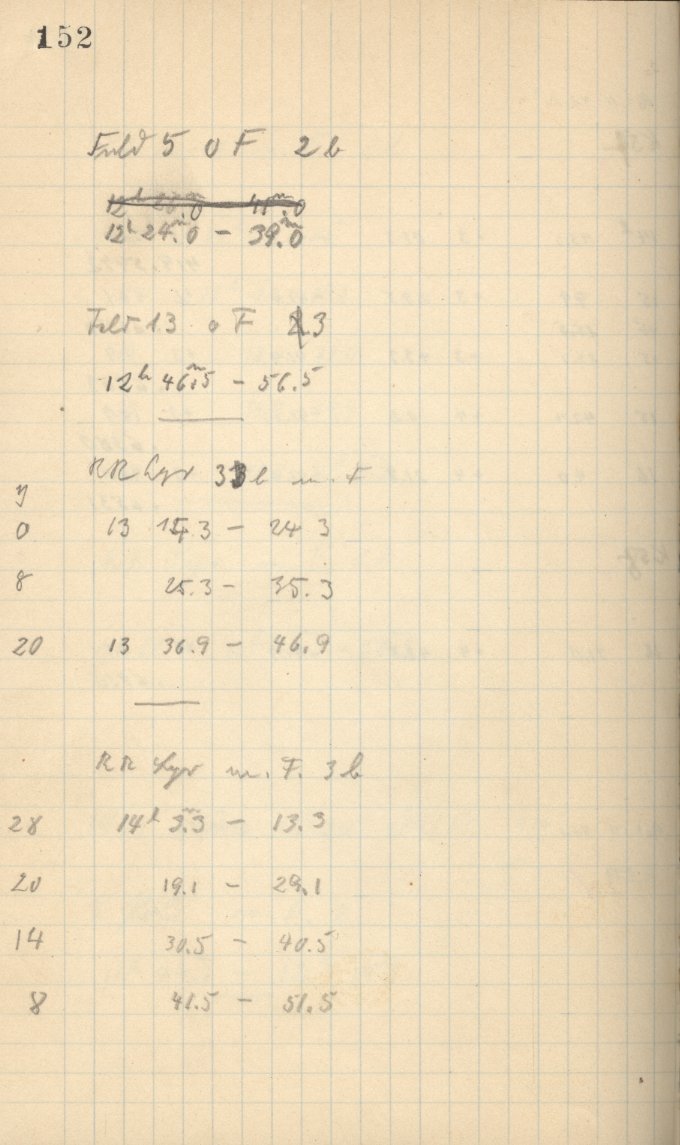 152
Feld 5 o F 2 b
12h 24m.0 – 39m.0
Feld 13 o F 3
12h 46m.5 – 56.5
RR Lyr 3 b m. F
y
0 13 14.3 – 24 3
8 25.3 – 35.3
20 13 36.9 – 46.9
RR Lyr m. F. 3 b
28 14h 3m.3 – 13.3
20 19.1 – 29.1
14 30.5 – 40.5
8 41.5 – 51.5